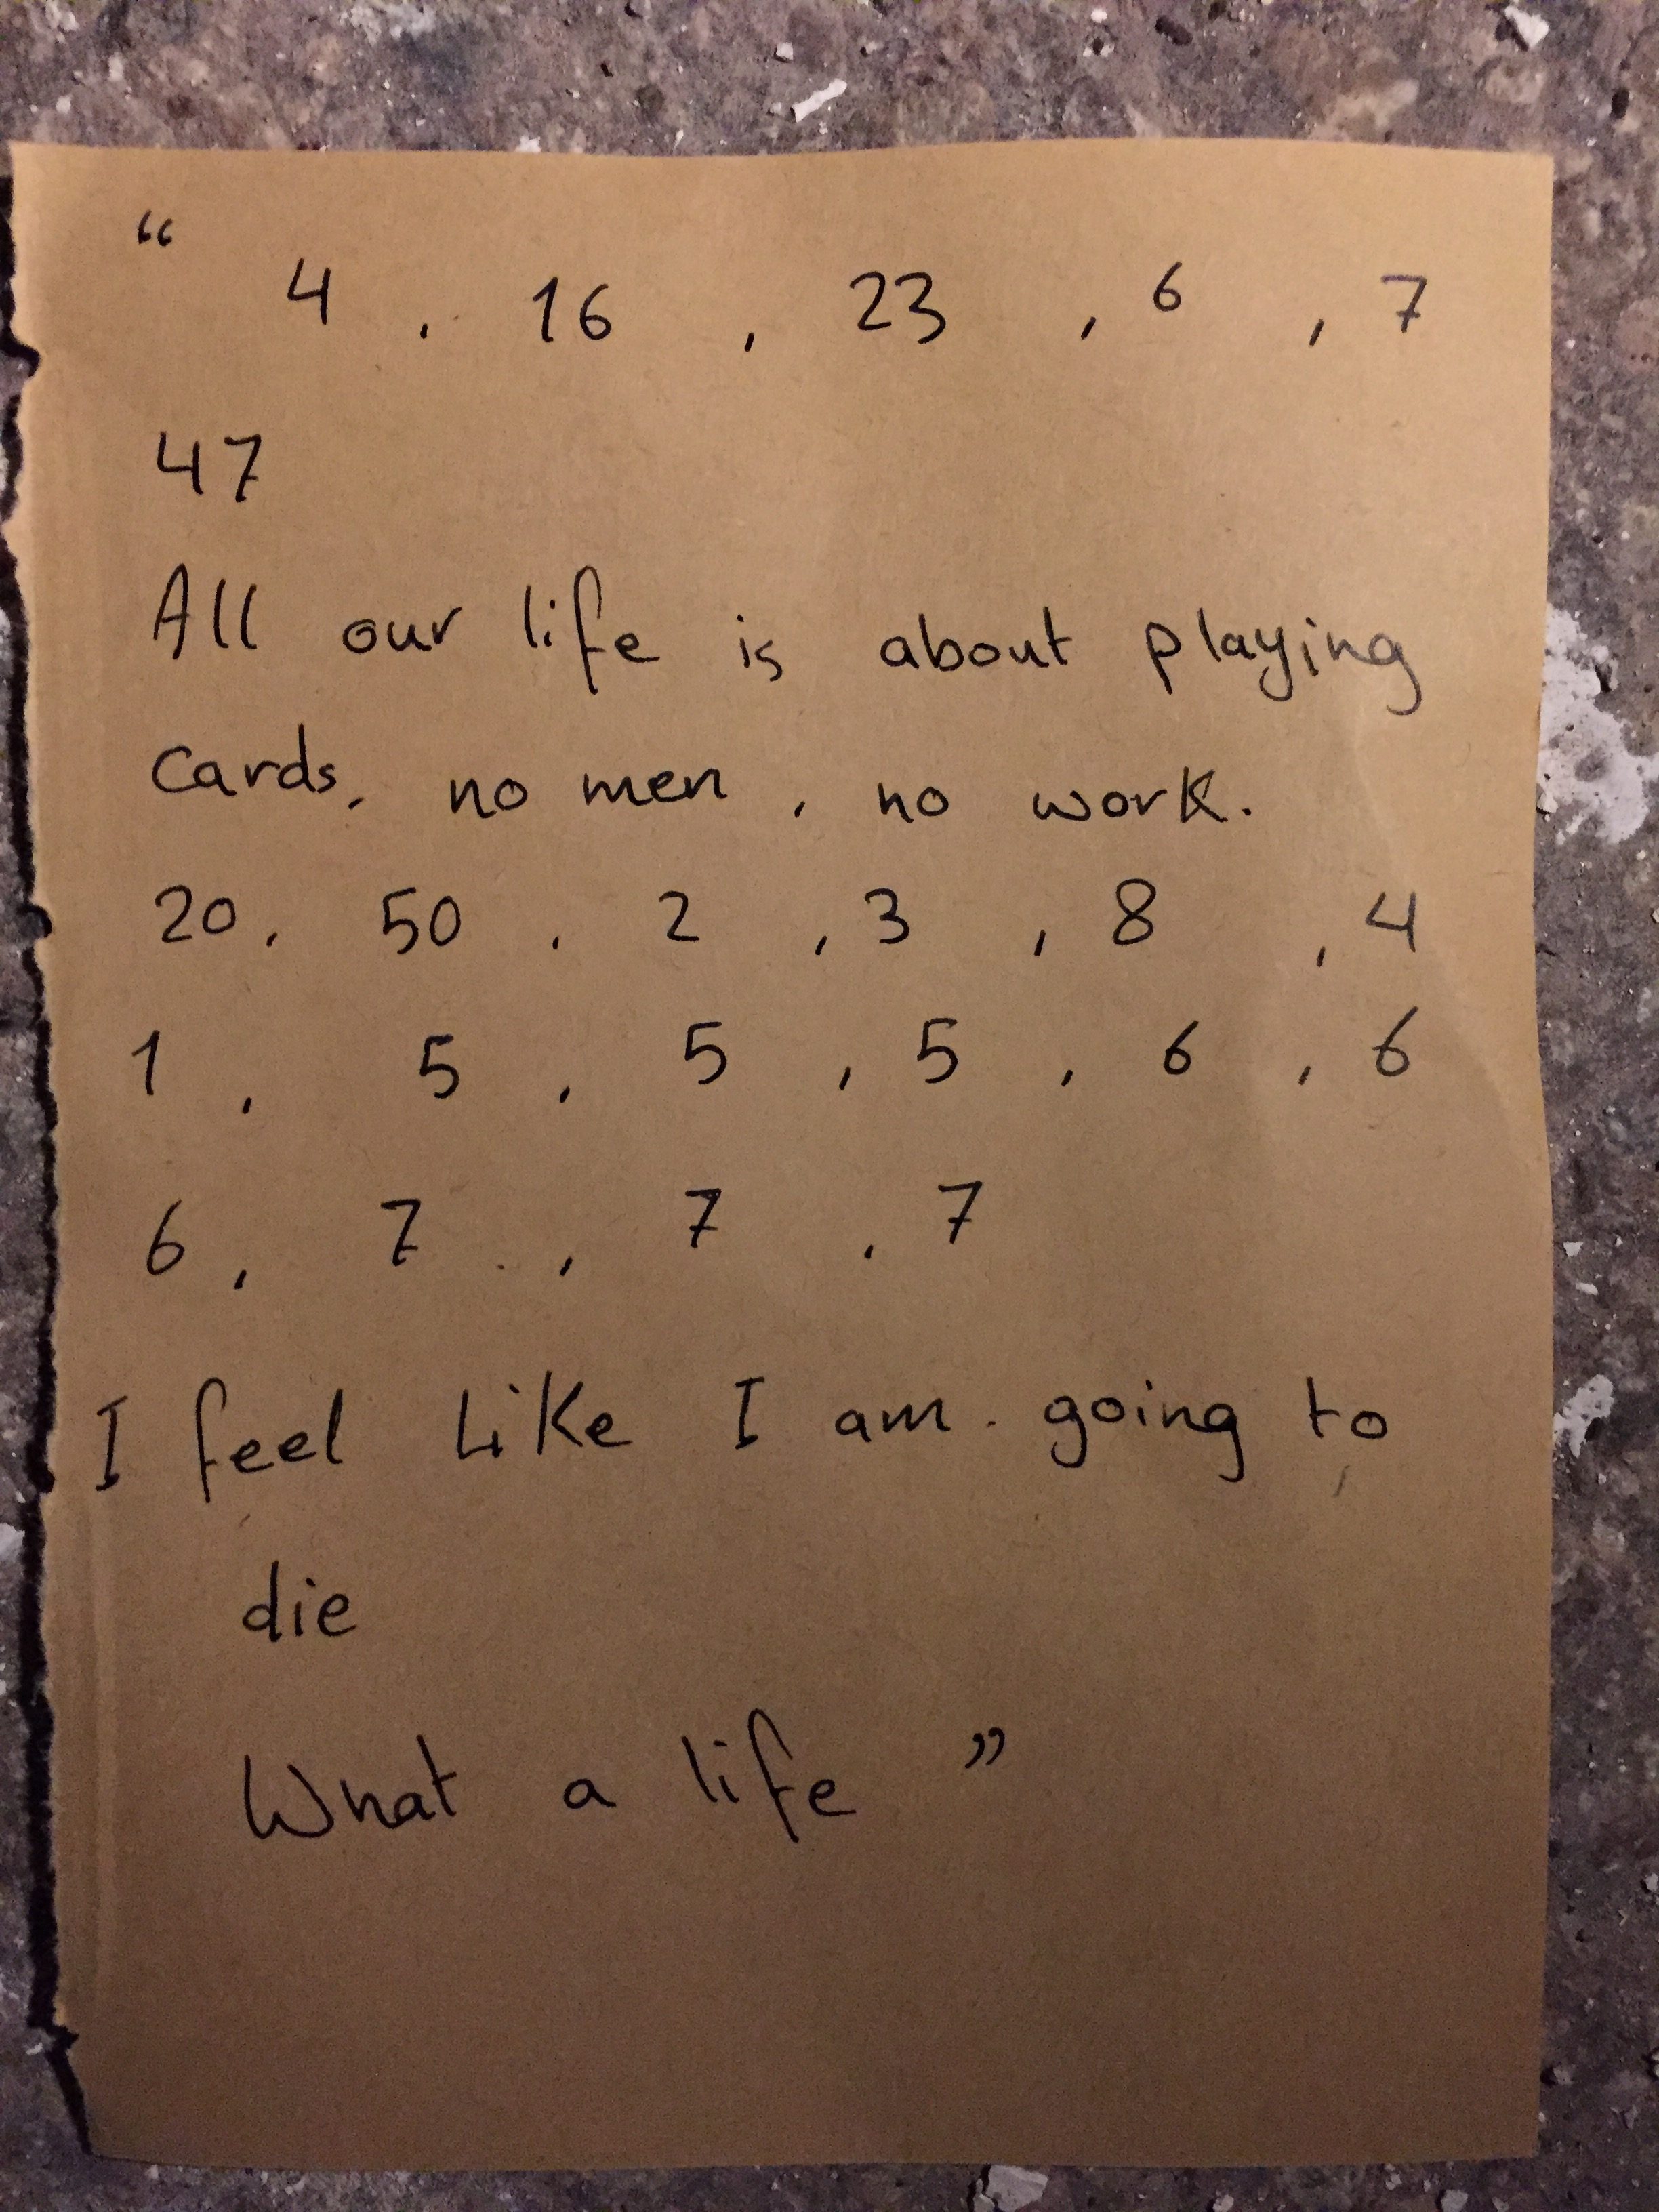 “ 4 , 16 , 23 , 6 , 7
47
All our life is about playing
cards, no men, no work.
20, 50, 2, 3, 8, 4
1, 5, 5, 5, 6, 6
6, 7, 7, 7
I feel like I am going to
die
What a life ”